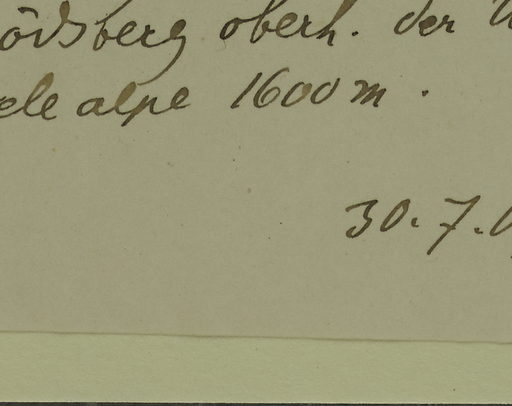 ödsberg oberh. der
ele alpe 1600 m.
30. 7. 0